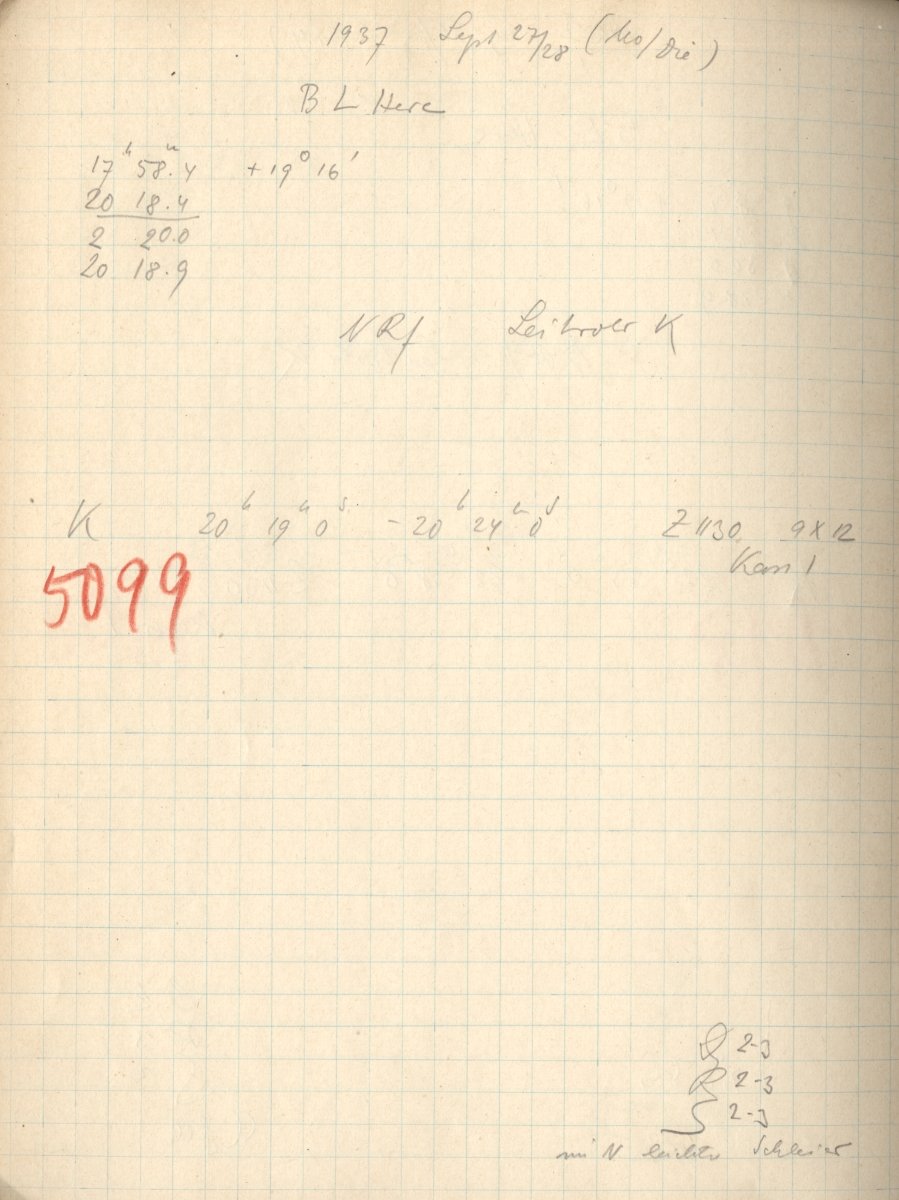 1937 Sept 27/28 (Mo/Die)
B L Herc
17ʰ 58.ᵐ4 +19° 16'
20 18.4
2 20.0
20 18.9
NRf Leitrohr K
K 20ʰ 19ᵐ 0ˢ - 20ʰ 24ᵐ 0ˢ Z 1130 9X12
Kass 1
5099
2-3
R 2-3
S 2-3
im N leichter Schleier